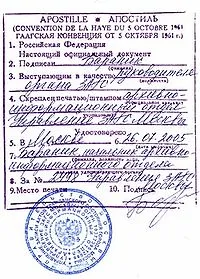 APOSTILLE - АПОСТИЛЬ
(CONVENTION DE LA HAYE DU 5 OCTOBRE 1961
ГААГСКАЯ КОНВЕНЦИЯ ОТ 5 ОКТЯБРЯ 1961 г.)
1. Российская Федерация
Настоящий официальный документ
2. Подписан Бараник
3. Выступающим в качестве руководителя
органа ЗАГС
4. Скреплен печатью/штампом архивно-
информационного
управления ЗАГС Москвы
Удостоверено
5. В Москве 6. 26.07.2005
7. Бараник, начальник архивно-
информационного отдела
8. За № Управления ЗАГС
Москвы
9. Место печати 10. Подпись